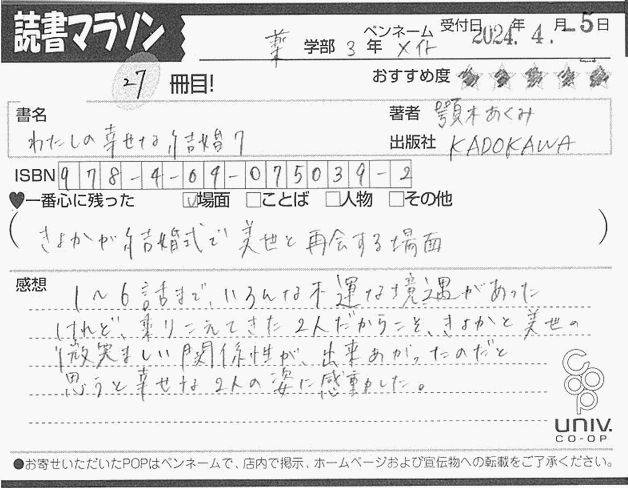 読書マラソン
薬 学部 3 年 ペンネーム メイト 受付日 2024年 4月 5日
27 冊目! おすすめ度 ★★★★★
書名 わたしの幸せな結婚7
著者 顎木あくみ
出版社 KADOKAWA
ISBN 978-4-04-075039-2
♥一番心に残った ☑場面 □ことば □人物 □その他
(きよかが結婚式で美世と再会する場面)
感想
1〜6話まで、いろんな不運な境遇があった
けれど、乗りこえてきた2人だからこそ、きよかと美世の
微笑ましい関係性が、出来あがったのだと
思うと幸せな2人の姿に感動した。
coop
univ.
CO-OP
●お寄せいただいたPOPはペンネームで、店内で掲示、ホームページおよび宣伝物への転載をご了承ください。